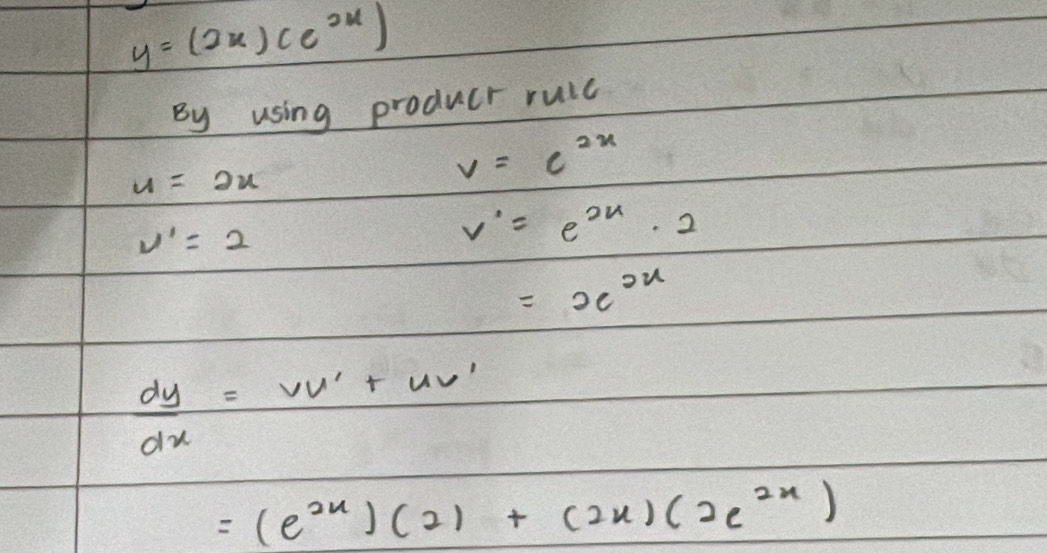 y = (2x)(e^{2x})
By using product rule
u = 2x v = e^{2x}
u' = 2 v' = e^{2x} . 2
= 2e^{2x}
dy/dx = vu' + uv'
= (e^{2x})(2) + (2x)(2e^{2x})